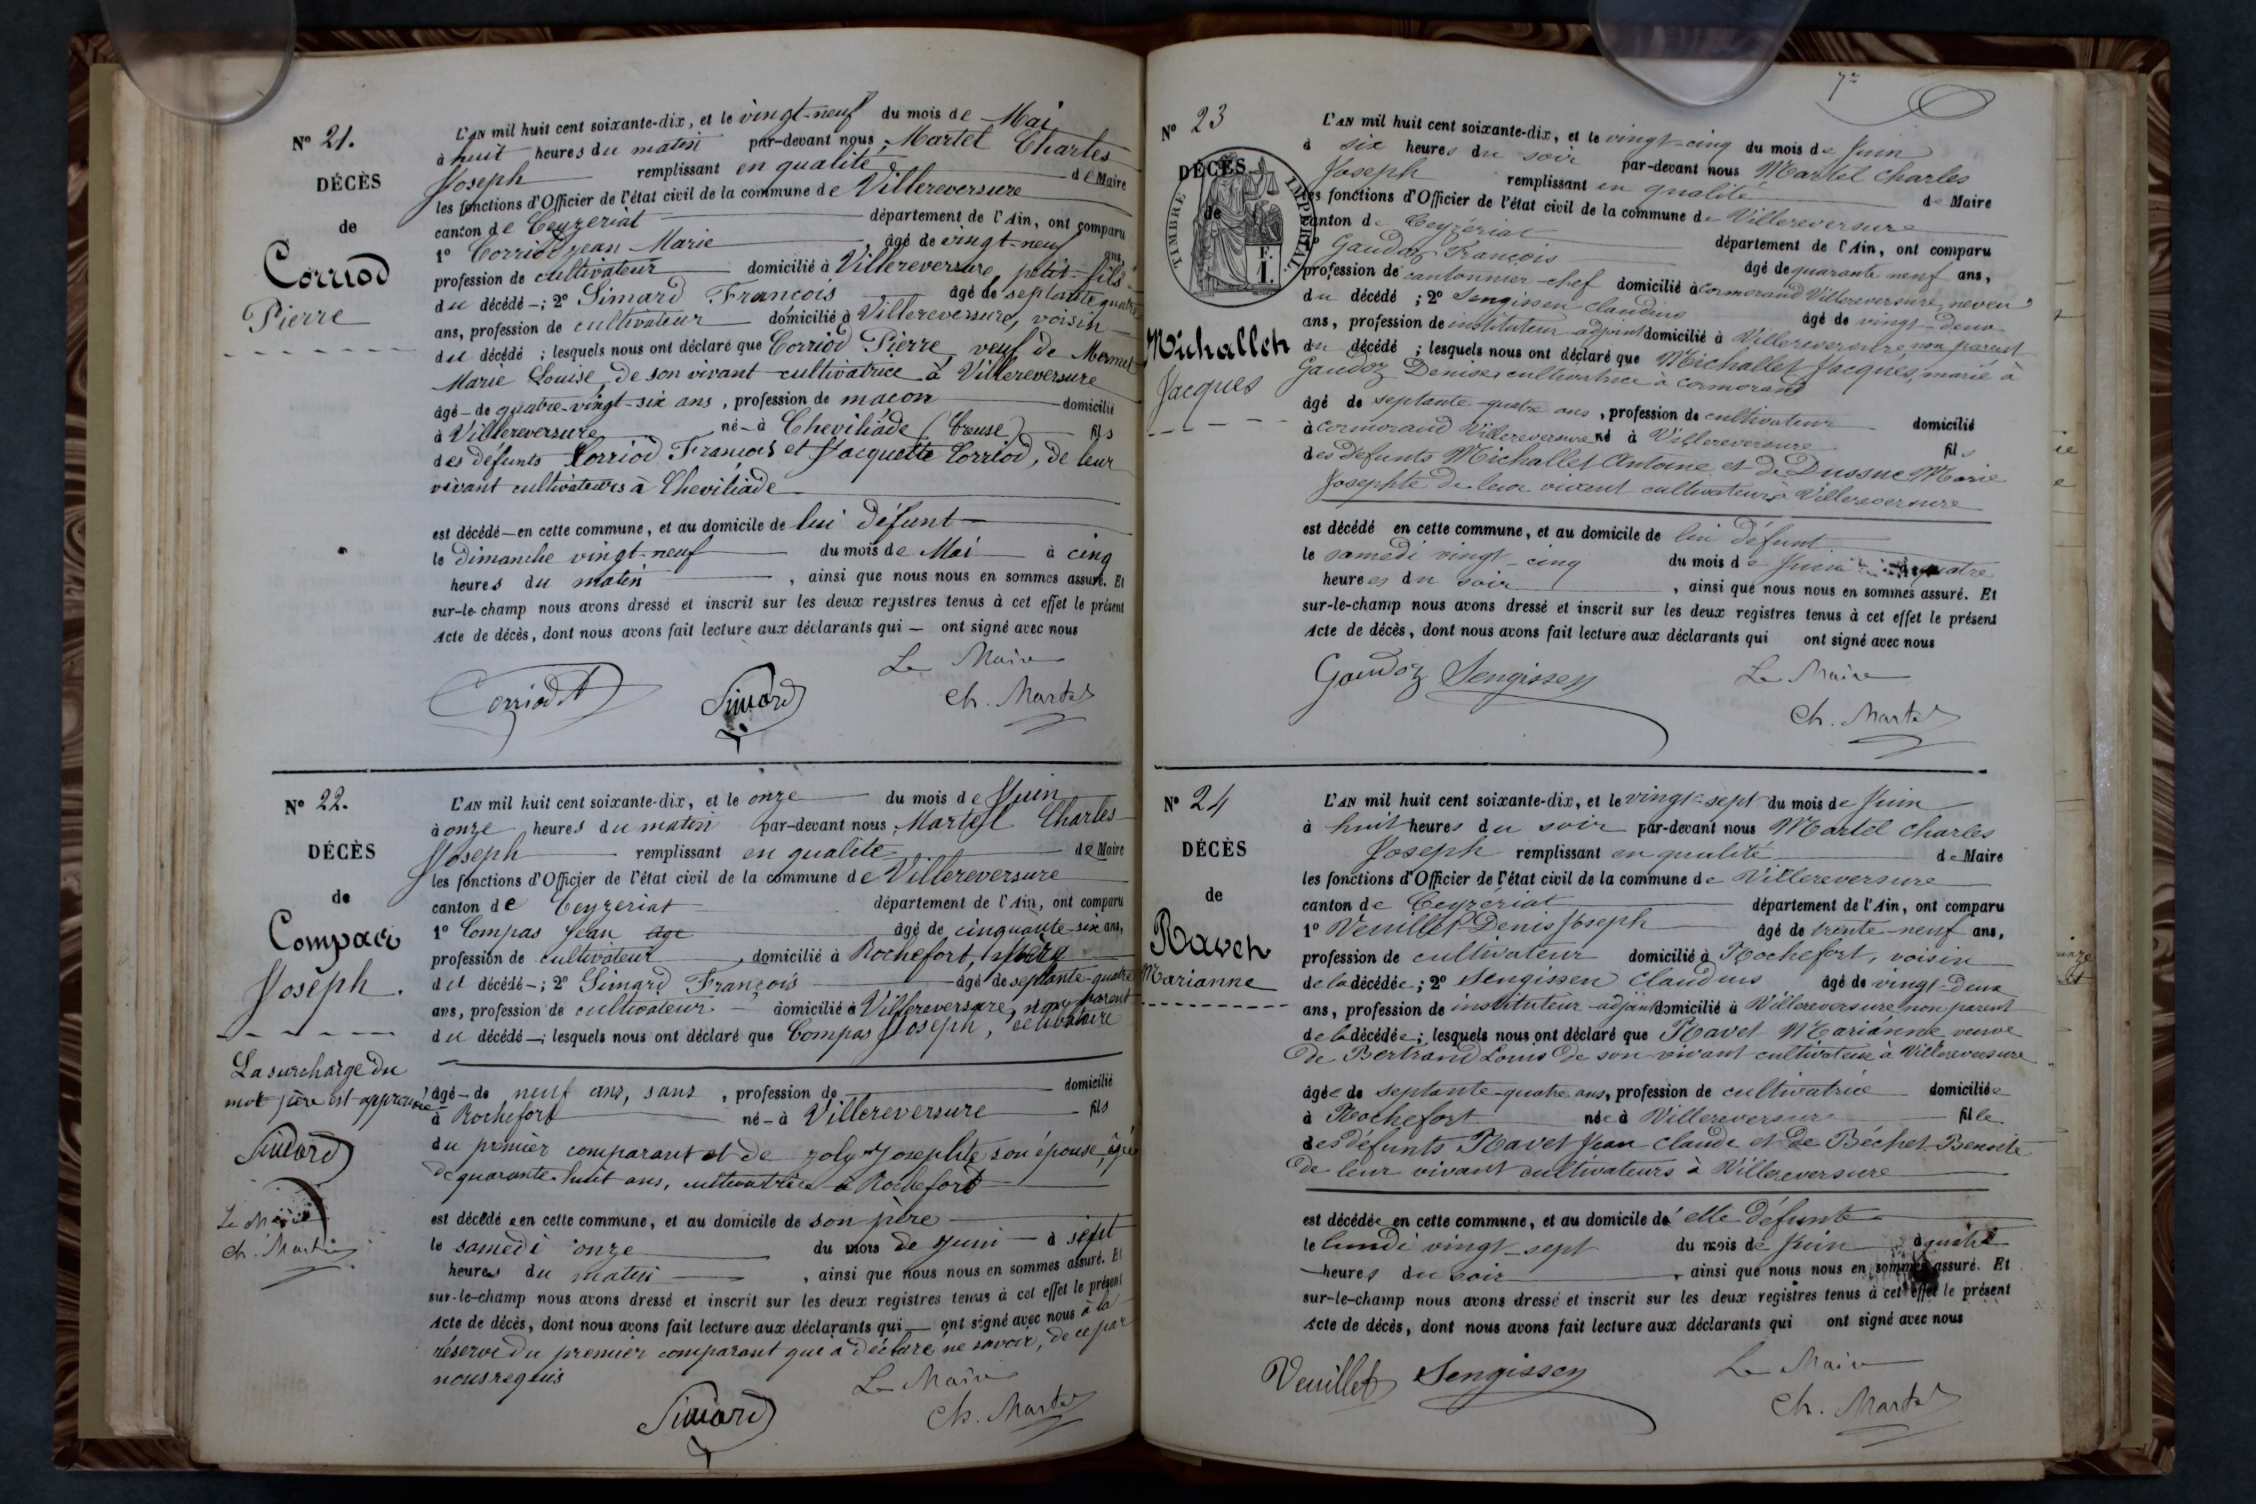 N° 21.
DÉCÈS
de
Corriod
Pierre
L'AN mil huit cent soixante-dix, et le vingt-neuf du mois de Mai
à huit heures du matin par-devant nous Martel Charles
Joseph remplissant en qualité de Maire
les fonctions d'Officier de l'état civil de la commune de Villereversure
canton de Ceyzeriat département de l'Ain, ont comparu
1° Corriod jean Marie, âgé de vingt-neuf ans,
profession de cultivateur domicilié à Villereversure, petit-fils
du décédé; 2° Simard François âgé de septante quatre
ans, profession de cultivateur domicilié à Villereversure, voisin
du décédé; lesquels nous ont déclaré que Corriod Pierre veuf de Mermet
Marie Louise, de son vivant cultivatrice à Villereversure
âgé de quatre-vingt-six ans, profession de maçon domicilié
à Villereversure né à Cheviliade (Creuse) fils
des défunts Corriod François et Jacquette Corriod, de leur
vivant cultivateurs à Cheviliade
est décédé en cette commune, et au domicile de lui défunt
le dimanche vingt-neuf du mois de Mai à cinq
heures du matin, ainsi que nous nous en sommes assuré. Et
sur-le-champ nous avons dressé et inscrit sur les deux registres tenus à cet effet le présent
Acte de décès, dont nous avons fait lecture aux déclarants qui ont signé avec nous
Le Maire
Corriod Simard Ch. Martel
N° 22.
DÉCÈS
de
Compas
Joseph.
La surcharge du
mot père est approuvée
Simard
Le Maire
Ch. Martel
L'AN mil huit cent soixante-dix, et le onze du mois de Juin
à onze heures du matin par-devant nous Martel Charles
Joseph remplissant en qualité de Maire
les fonctions d'Officier de l'état civil de la commune de Villereversure
canton de Ceyzeriat département de l'Ain, ont comparu
1° Compas Jean age âgé de cinquante-six ans,
profession de cultivateur, domicilié à Rochefort, père
du décédé; 2° Simard François âgé de septante-quatre
ans, profession de cultivateur domicilié à Villereversure, non parent
du décédé; lesquels nous ont déclaré que Compas Joseph, célibataire
âgé de neuf ans, sans, profession de domicilié
à Rochefort né à Villereversure fils
du premier comparant et de Joly Josephte son épouse, âgée
de quarante-huit ans, cultivatrice à Rochefort
est décédé en cette commune, et au domicile de son père
le samedi onze du mois de Juni à sept
heures du matin, ainsi que nous nous en sommes assuré. Et
sur-le-champ nous avons dressé et inscrit sur les deux registres tenus à cet effet le présent
Acte de décès, dont nous avons fait lecture aux déclarants qui ont signé avec nous à la
réserve du premier comparant qui a déclaré ne savoir, de ce par
nous requis
Le Maire
Simard Ch. Martel
N° 23
DÉCÈS
de
TIMBRE IMPÉRIAL
F. 1.
Michallet
Jacques
L'AN mil huit cent soixante-dix, et le vingt-cinq du mois de Juin
à six heures du soir par-devant nous Martel Charles
Joseph remplissant en qualité de Maire
les fonctions d'Officier de l'état civil de la commune de Villereversure
canton de Ceyzériat département de l'Ain, ont comparu
1° Gaudoz François âgé de quarante neuf ans,
profession de cantonnier-chef domicilié à Cormorand Villereversure, neveu
du décédé; 2° Sengissen claudius âgé de vingt-deux
ans, profession de instituteur-adjoint domicilié à Villereversure, non parent
du décédé; lesquels nous ont déclaré que Michallet Jacques, marié à
Gaudoz Denise, cultivatrice à cormorand
âgé de septante-quatre ans, profession de cultivateur domicilié
à cormorand Villereversure né à Villereversure fils
des défunts Michallet Antoine et de Dussuc Marie
Josephte de leur vivant cultivateurs à Villereversure
est décédé en cette commune, et au domicile de lui défunt
le samedi vingt-cinq du mois de Juin à quatre
heures du soir, ainsi que nous nous en sommes assuré. Et
sur-le-champ nous avons dressé et inscrit sur les deux registres tenus à cet effet le présent
Acte de décès, dont nous avons fait lecture aux déclarants qui ont signé avec nous
Gaudoz Sengissen Le Maire
Ch. Martel
N° 24
DÉCÈS
de
Ravet
Marianne
L'AN mil huit cent soixante-dix, et le vingt-sept du mois de Juin
à huit heures du soir par-devant nous Martel Charles
Joseph remplissant en qualité de Maire
les fonctions d'Officier de l'état civil de la commune de Villereversure
canton de Ceyzériat département de l'Ain, ont comparu
1° Veuillet Denis Joseph âgé de trente-neuf ans,
profession de cultivateur domicilié à Rochefort, voisin
de la décédée; 2° Sengissen Claudius âgé de vingt-deux
ans, profession de instituteur-adjoint domicilié à Villereversure, non parent
de la décédée; lesquels nous ont déclaré que Ravet Marianne veuve
de Bertrand Louis de son vivant cultivateur à Villereversure
âgée de septante-quatre ans, profession de cultivatrice domiciliée
à Rochefort née à Villereversure fille
des défunts Ravet Jean claude et de Béchet Benoite
de leur vivant cultivateurs à Villereversure
est décédée en cette commune, et au domicile de elle défunte
le lundi vingt-sept du mois de Juin à quatre
heures du soir, ainsi que nous nous en sommes assuré. Et
sur-le-champ nous avons dressé et inscrit sur les deux registres tenus à cet effet le présent
Acte de décès, dont nous avons fait lecture aux déclarants qui ont signé avec nous
Veuillet Sengissen Le Maire
Ch. Martel